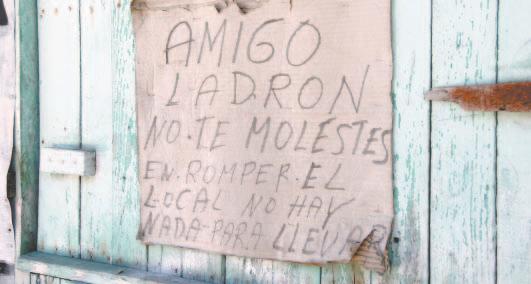 AMIGO
LADRON
NO.TE MOLESTES
EN.ROMPER.EL
LOCAL NO HAY
NADA-PARA LLEVAR